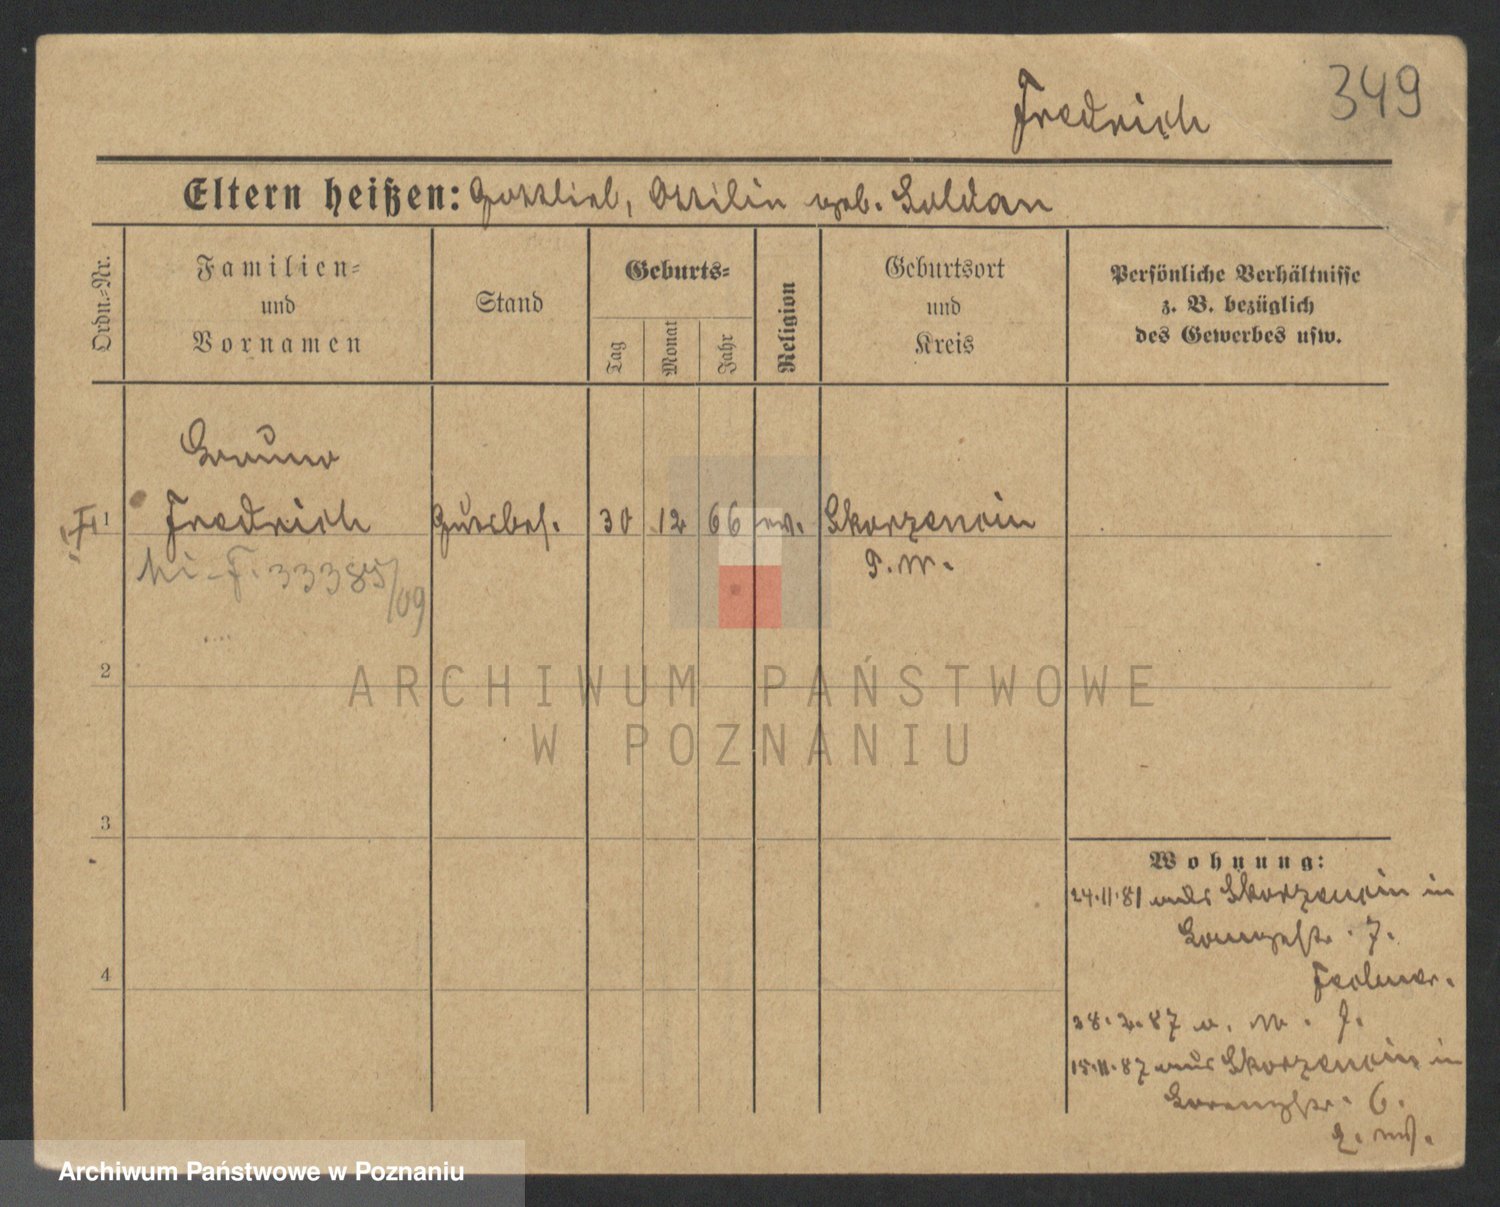 349
Fredrich
Eltern heißen: Gottlieb, Ottilie geb. Goldan
Ordn.-Nr.
Familien-
und
Vornamen
Stand
Geburts-
Tag
Monat
Jahr
Religion
Geburtsort
und
Kreis
Persönliche Verhältnisse
z. B. bezüglich
des Gewerbes usw.
Bruno
1 Fredrich Gutsbes. 30 12 66 ev. Skorzencin
P. W.
33385/09
2
3
4
Wohnung:
24.11.81 aus Skorzencin in
7.
28.2.87 7.
15.11.87 aus Skorzencin in
6.
ARCHIWUM PAŃSTWOWE
W POZNANIU
Archiwum Państwowe w Poznaniu